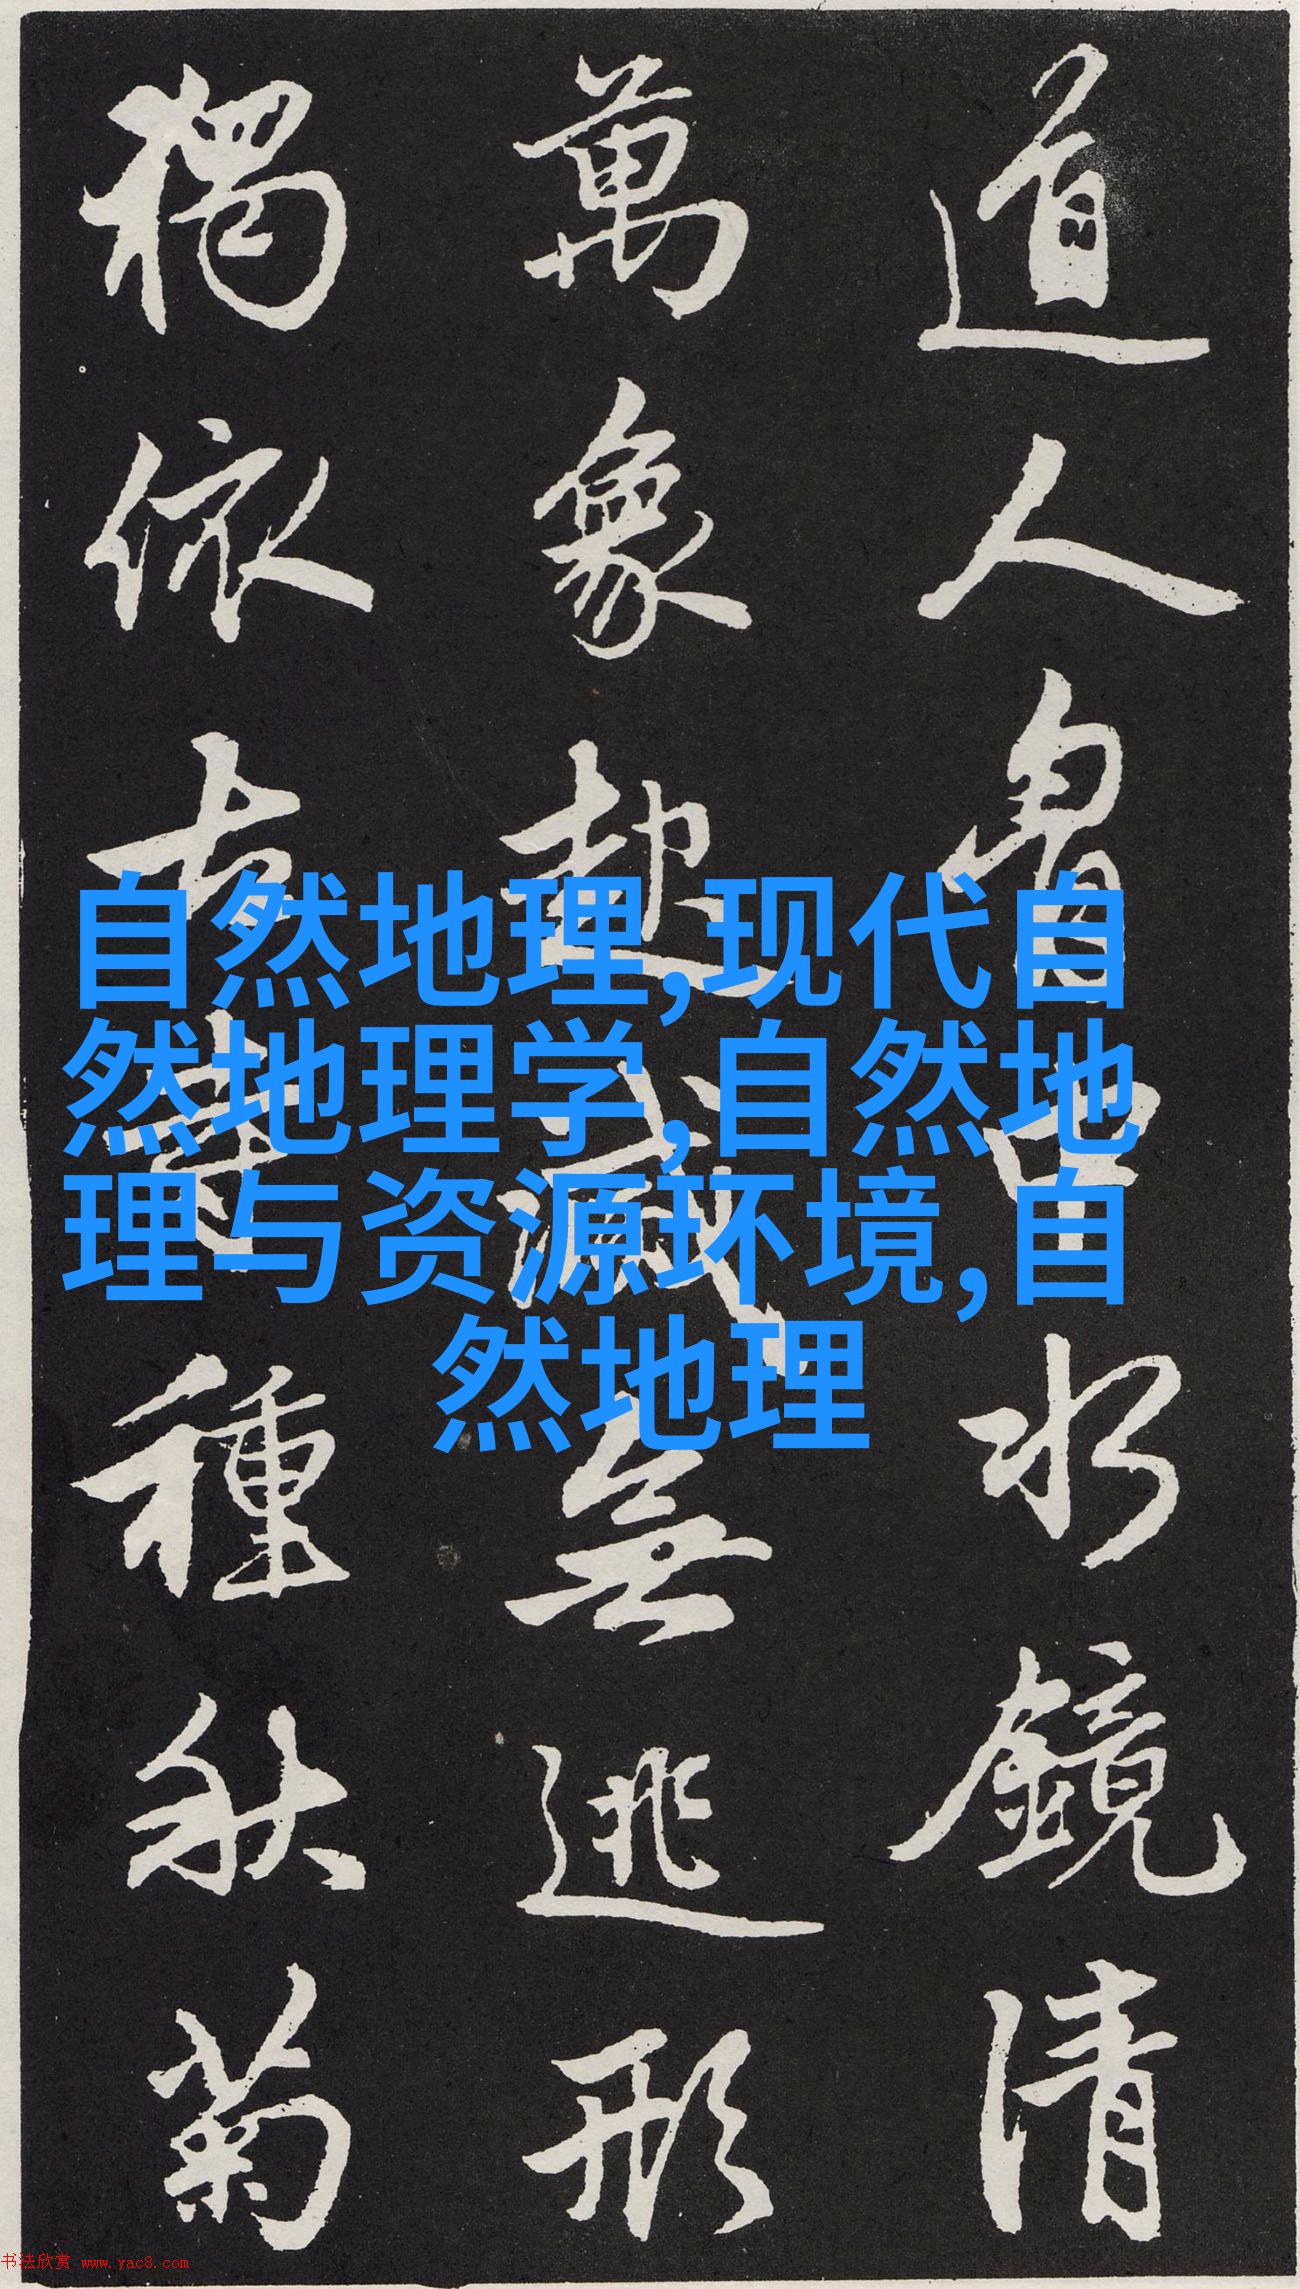 道人胷中水鏡清
萬象起滅無逃形
獨依古寺種秋菊
自然地理,现代自
然地理学,自然地
理与资源环境,自
然地理
书法欣赏 www.yac8.com